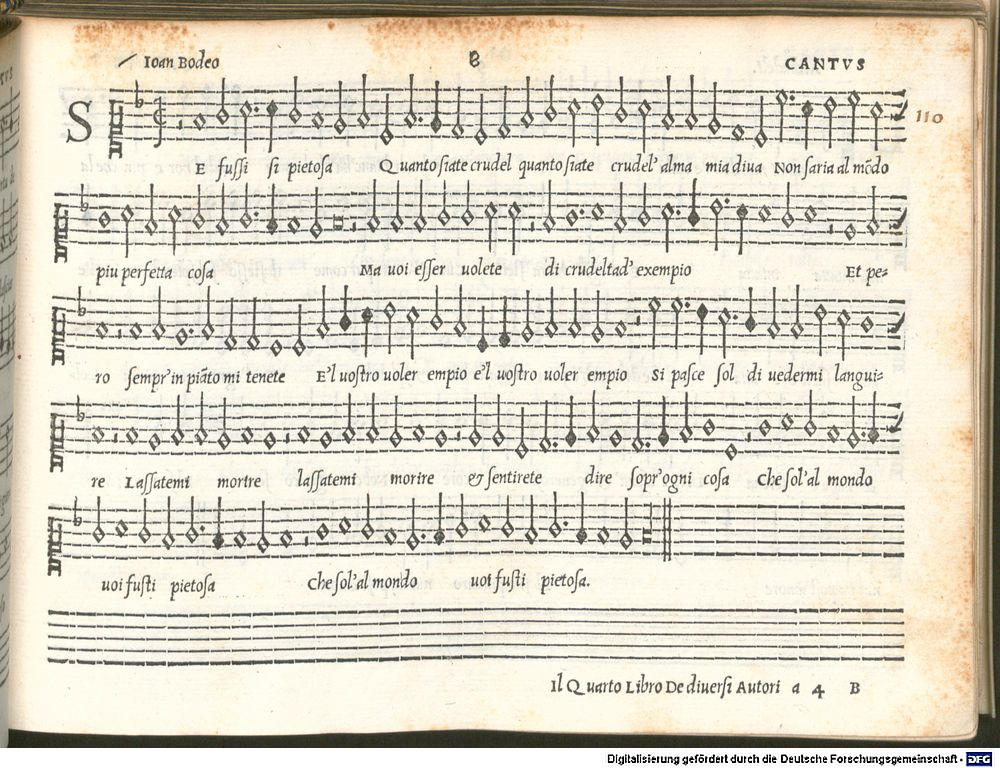 Ioan Bodeo 8 CANTVS
110
SE fussi si pietosa Quanto siate crudel quanto siate crudel' alma mia diua Non saria al mõdo
piu perfetta cosa Ma uoi esser uolete di crudeltad' exempio Et pe-
ro sempr'in piãto mi tenete E'l uostro uoler empio e'l uostro uoler empio Si pasce sol di uedermi langui-
re Lassatemi morire lassatemi morire & sentirete dire sopr'ogni cosa Che sol'al mondo
uoi fusti pietosa Che sol'al mondo uoi fusti pietosa.
Il Quarto Libro De diuersi Autori a 4 B
Digitalisierung gefördert durch die Deutsche Forschungsgemeinschaft - DFG